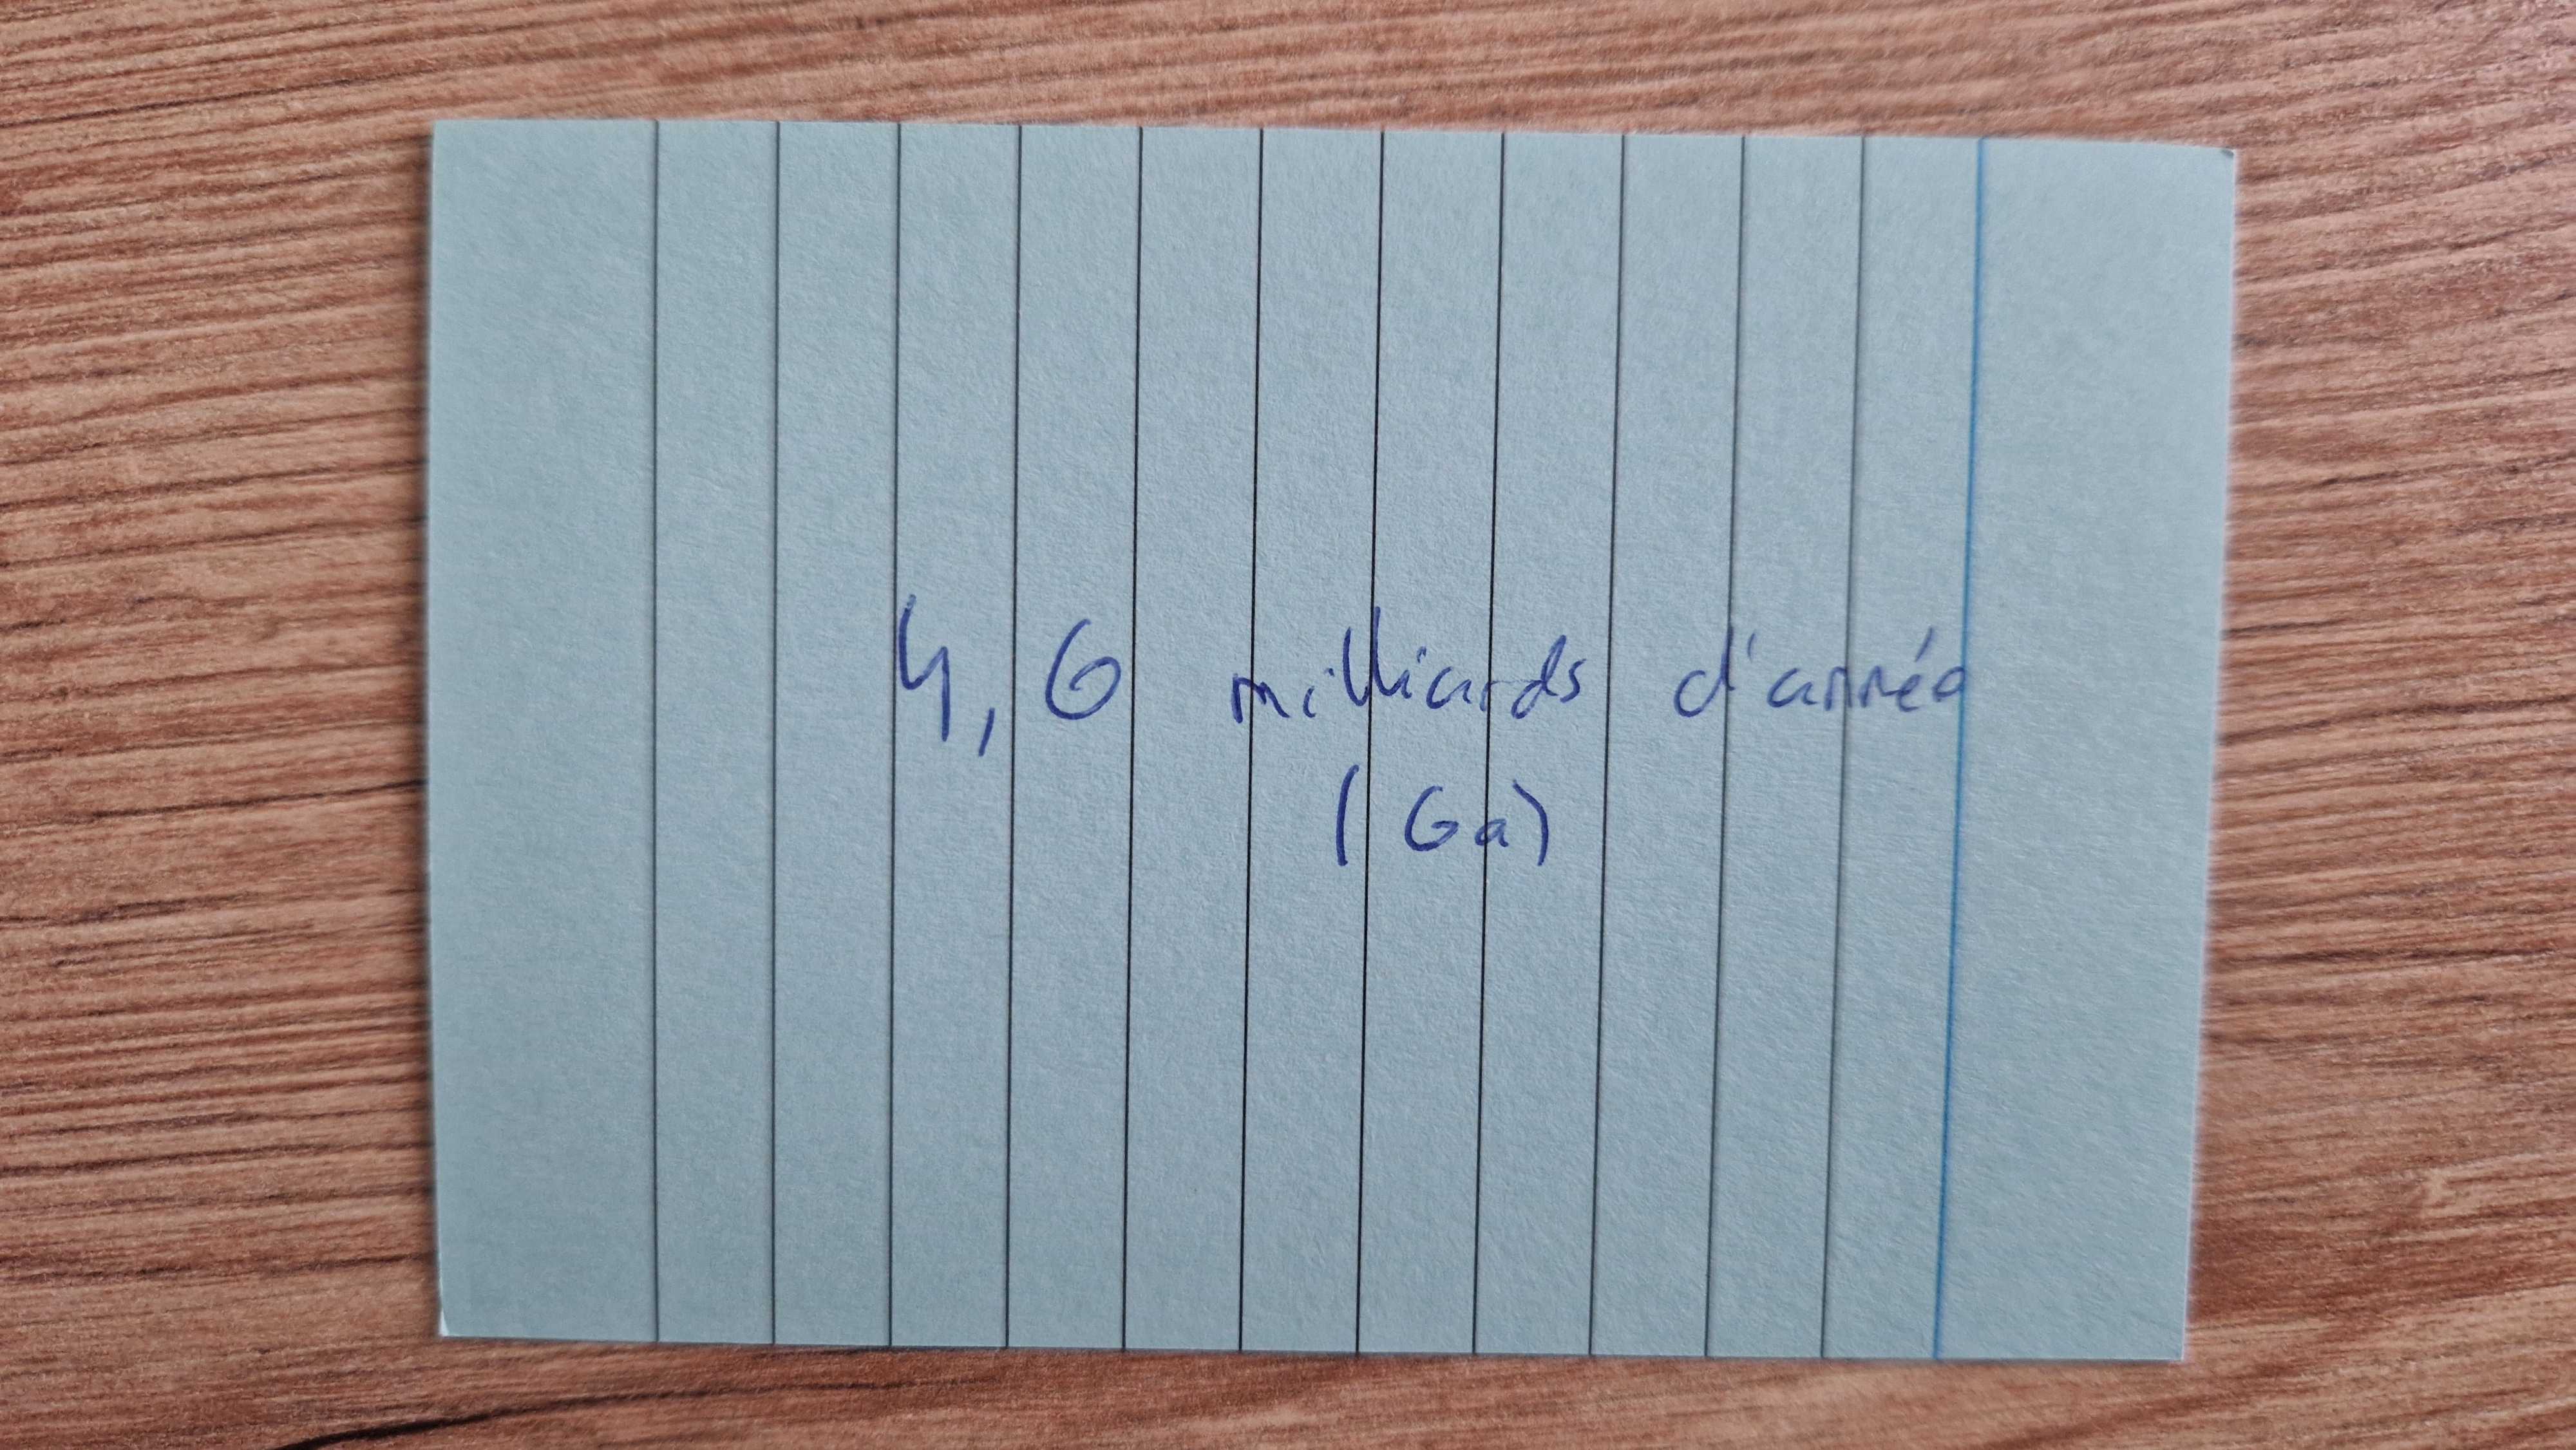 4,6 milliards d'année
(Ga)